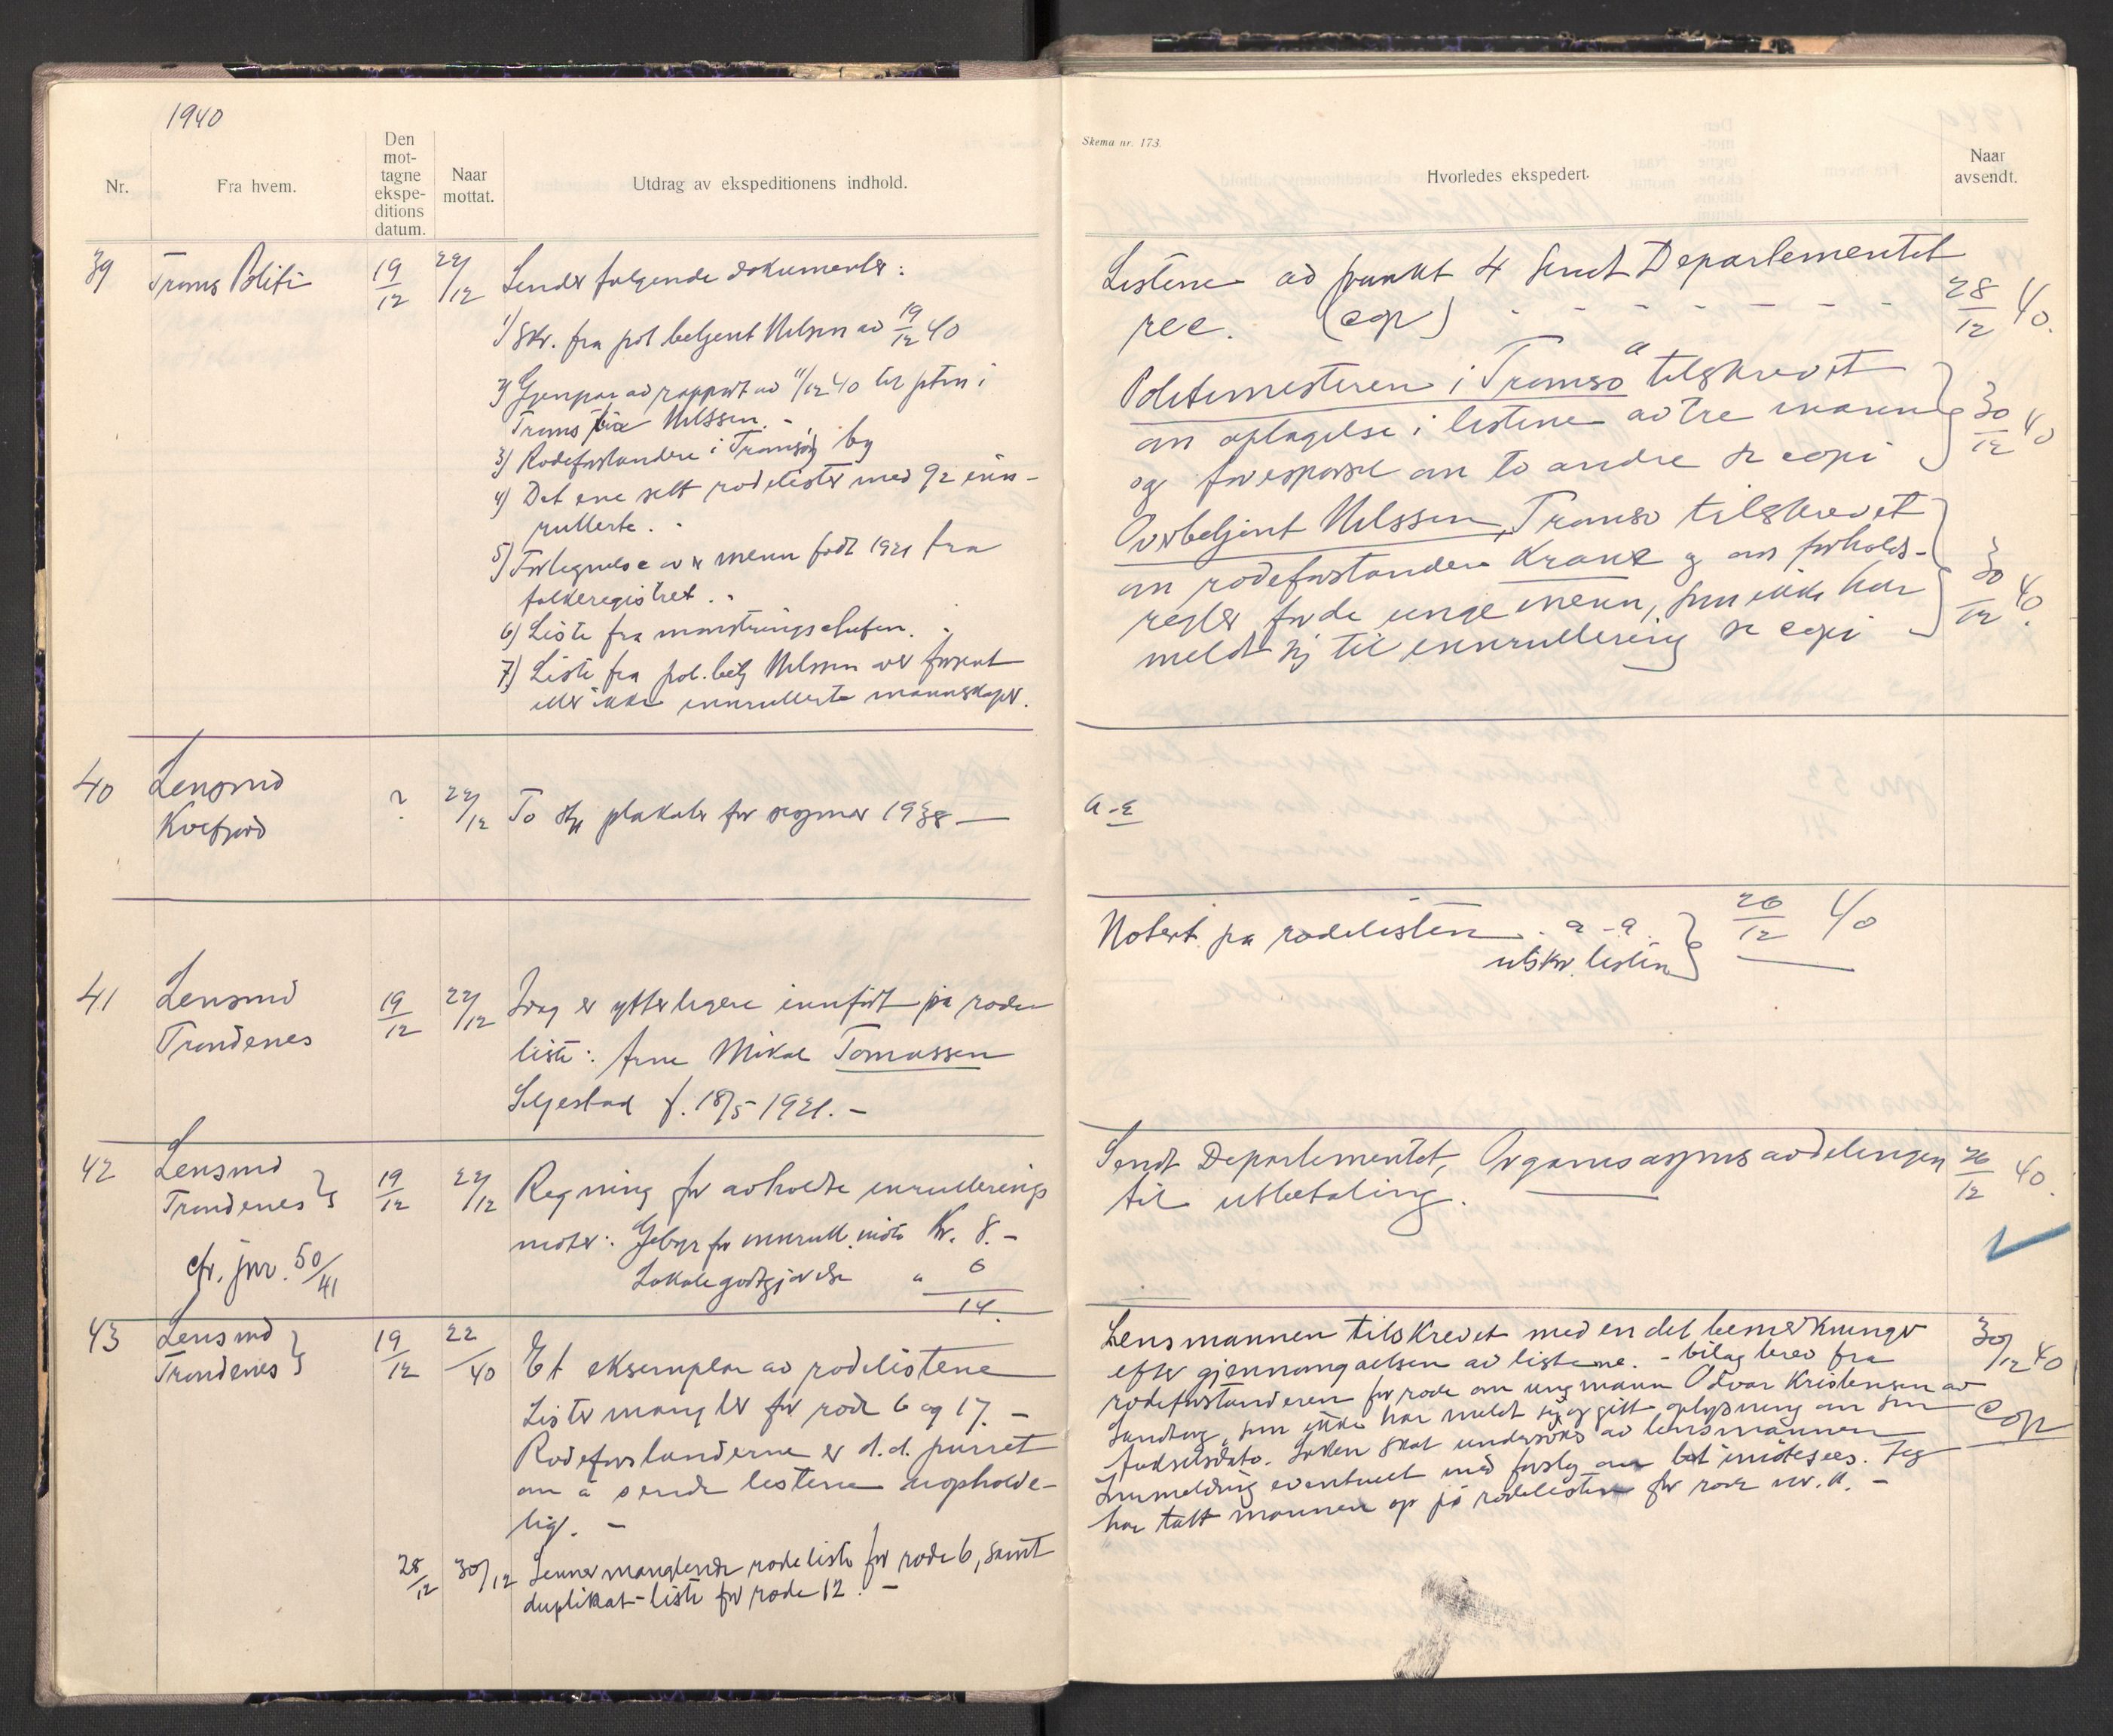 1940
Nr.
Fra hvem.
Den
mot-
tagne
ekspe-
ditions
datum.
Naar
mottat.
Utdrag av ekspeditionens indhold.
39 Troms Politi 19/12 22/12 Sender følgende dokumenter:
1) Skr. fra pol betjent Nilssen av 19/12 40
2) Gjenpar av rapport av 11/12 40 til i
Troms fra Nilssen. -
3) Rodeforstandere i Tromsø by
4) Det ene sett rodelister med 92 inn-
rullerte. -
5) Fortegnelse over menn født 1921 fra
folkeregistret. -
6) Liste fra mønstringssjefen. -
7) Liste fra pol. betj Nilssen over forsent
eller ikke innrullerte mannskaper.
40 Lensmd
Kvefjord ? 22/12 To stk plakater for sesjoner 1938 —
41 Lensmd
Trondenes 19/12 22/12 Idag er ytterligere innført på rode
liste: Arne Mikal Tomassen
Seljestad f. 18/5 1921. -
42 Lensmd
Trondenes 19/12 22/12 Regning for avholdte innrullerings
møter: Gebyr for innrull. møte Kr. 8. -
Lokalegodtgjørelse " 6
14.
cfr. jnr. 50/41
43 Lensmd
Trondenes 19/12 22/40 Et eksemplar av rodelistene
Lister mangler for rode 6 og 17. -
Rodeforstanderne er d.d. purret
om å sende listene uopholde-
lig. -
28/12 30/12 Senner manglende rodeliste for rode 6, samt
duplikat-liste for rode 12. -
Skema nr. 173.
Hvorledes ekspedert.
Naar
avsendt.
Listene ad punkt 4 sendt Departementet
rec. (cop) - - - - - - - 28/12 40.
Politimesteren i Tromsø tilskrevet
om optagelse i listene av tre mann
og forespørsel om to andre se copi 30/12 40
Overbetjent Nilssen, Tromsø tilskrevet
om rodeforstander Krane og om forholds-
regler for de unge menn, som ikke har
meldt sig til innrullering se copi 30/12 40.
a-ε
Notert på rodelisten. a-a.
utskr. listen 26/12 40
Sendt Departementet, Organisasjonsavdelingen
til utbetaling. 26/12 40.
Lensmannen tilskrevet med en del bemerkninger
efter gjennomgåelsen av listene. - bilag brev fra
rodeforstanderen for rode om ungmann Odvar Kristensen av
Sandtorg, som ikke har meldt sig og gitt oplysning om sin
fødselsdato. Saken skal undersøkes av lensmannen
Innmelding eventuelt med forslag om bot imøtesees. Jeg
har tatt mannen op på rodelisten for rode nr. 11. -
30/12 40
cop